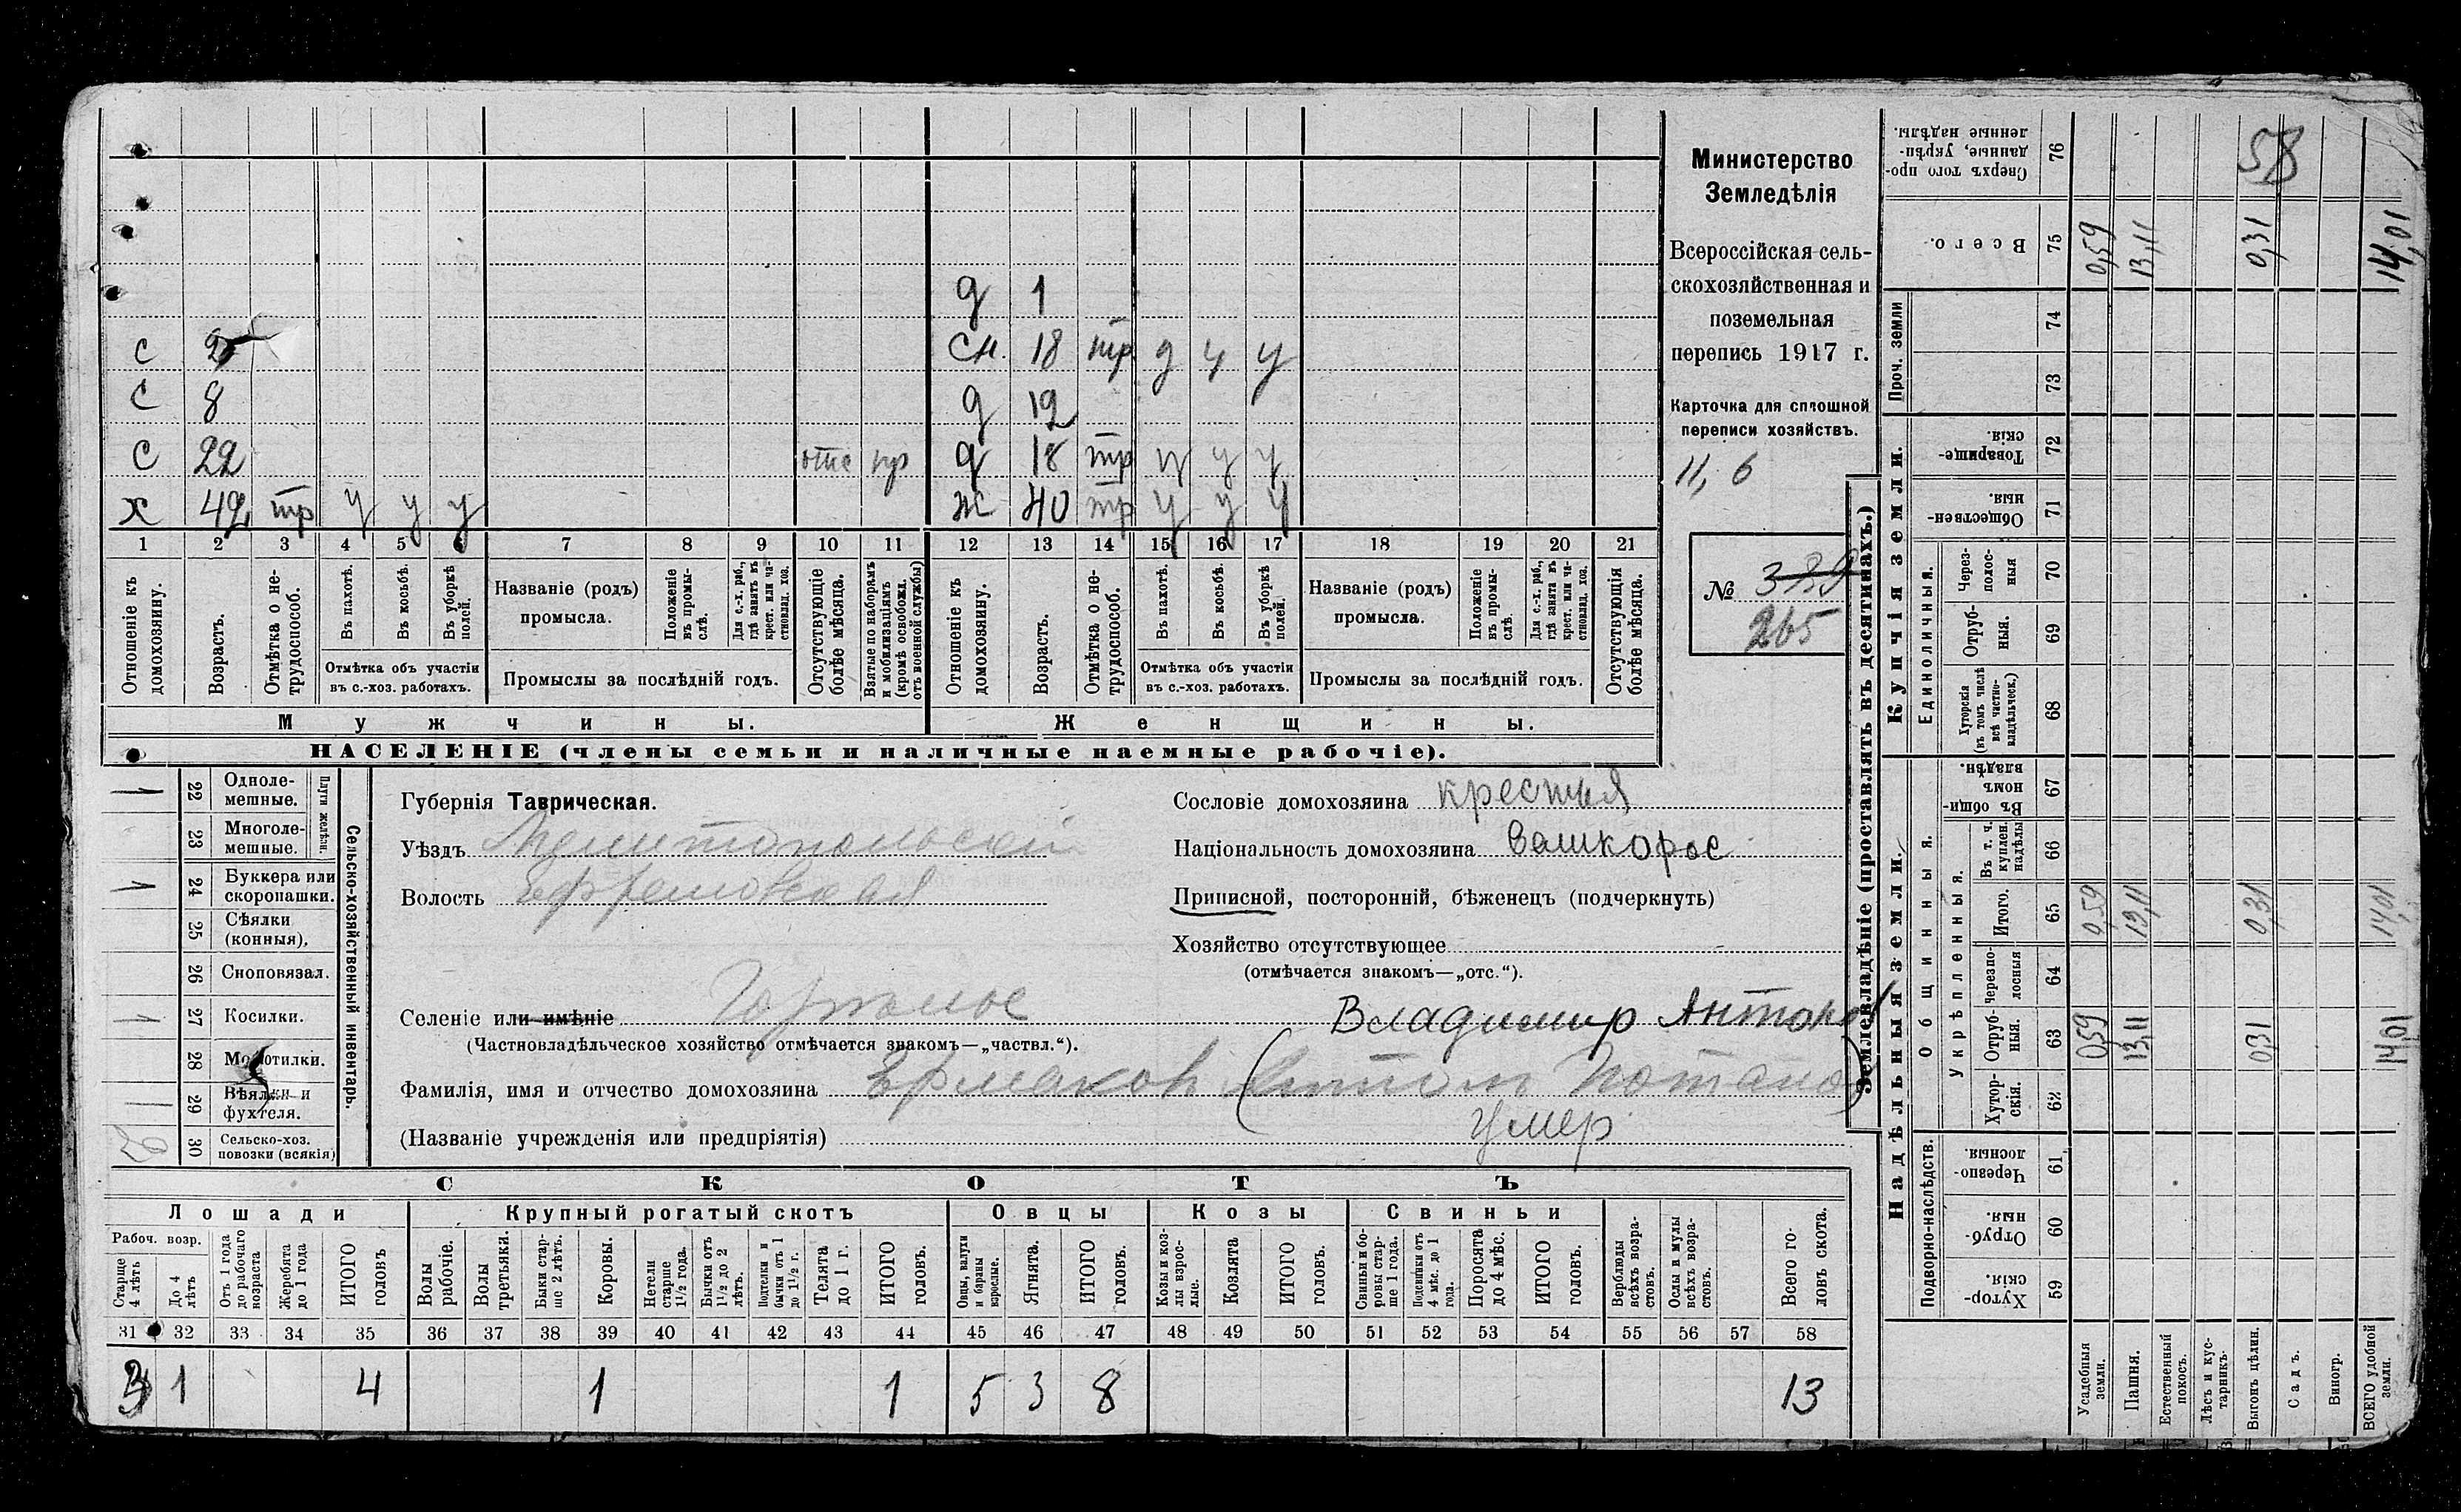 Министерство
Земледѣлія
Всероссійская сель-
скохозяйственная и
поземельная
перепись 1917 г.
Карточка для сплошной
переписи хозяйствъ.
11, 6
№ 339
265
д 1
с 2 сн. 18 тр д у у
с 8 д 12
с 22 отс пр д 18 тр у у у
х 42 тр у у у ж 40 тр у у у
1 2 3 4 5 6 7 8 9 10 11 12 13 14 15 16 17 18 19 20 21
Отношеніе къ домохозяину.
Возрастъ.
Отмѣтка о не-трудоспособ.
Въ пахотѣ.
Въ косьбѣ.
Въ уборкѣ полей.
Отмѣтка объ участіи
въ с.-хоз. работахъ.
Названіе (родъ)
промысла.
Положеніе въ промы-слѣ.
Для с.-х. раб., гдѣ занятъ въ крест. или ча-стновлад. хоз.
Промыслы за послѣдній годъ.
Отсутствующіе болѣе мѣсяца.
Взятые по наборамъ и мобилизаціямъ (кромѣ освобожд. отъ военной службы)
Отношеніе къ домохозяину.
Возрастъ.
Отмѣтка о не-трудоспособ.
Въ пахотѣ.
Въ косьбѣ.
Въ уборкѣ полей.
Отмѣтка объ участіи
въ с.-хоз. работахъ.
Названіе (родъ)
промысла.
Положеніе въ промы-слѣ.
Для с.-х. раб., гдѣ занята въ крест. или ча-стновлад. хоз.
Промыслы за послѣдній годъ.
Отсутствующія болѣе мѣсяца.
Мужчины.
Женщины.
НАСЕЛЕНІЕ (члены семьи и наличные наемные рабочіе).
Сельско-хозяйственный инвентарь.
Плуги желѣзн.
1 22 Одноле-мешные.
23 Многоле-мешные.
1 24 Буккера или скоропашки.
25 Сѣялки (конныя).
26 Сноповязал.
1 27 Косилки.
28 Молотилки.
1 29 Вѣялки и фухтеля.
30 Сельско-хоз. повозки (всякія)
Губернія Таврическая.
Уѣздъ Мелитопольскій
Волость Ефремовская
Селеніе или имѣніе
(Частновладѣльческое хозяйство отмѣчается знакомъ—„частвл.“).
Сословіе домохозяина крестья
Національность домохозяина Вашкорос
Приписной, посторонній, бѣженецъ (подчеркнуть)
Хозяйство отсутствующее
(отмѣчается знакомъ—„отс.“).
Владимир Антонов
Фамилія, имя и отчество домохозяина Ермаков (Антон Потапов)
умер
(Названіе учрежденія или предпріятія)
СКОТЪ
Лошади
Крупный рогатый скотъ
Овцы
Козы
Свиньи
Рабоч. возр.
Старше 4 лѣтъ
До 4 лѣтъ
Отъ 1 года до рабочаго возраста
Жеребята до 1 года
ИТОГО головъ
Волы рабочіе.
Волы третьяки.
Быки стар-ше 2 лѣтъ.
Коровы.
Нетели старше 1½ года.
Бычки отъ 1½ до 2 лѣтъ.
Подтелки и бычки отъ 1 до 1½ г.
Телята до 1 г.
ИТОГО головъ.
Овцы, валухи и бараны взрослые.
Ягнята.
ИТОГО головъ.
Козы и коз-лы взрос-лые.
Козлята
ИТОГО головъ.
Свиньи и бо-ровы стар-ше 1 года.
Подсвинки отъ 4 мѣс. до 1 года.
Поросята до 4 мѣс.
ИТОГО головъ.
Верблюды всѣхъ возра-стовъ.
Ослы и мулы всѣхъ возра-стовъ.
Всего го-ловъ скота.
31 32 33 34 35 36 37 38 39 40 41 42 43 44 45 46 47 48 49 50 51 52 53 54 55 56 57 58
3 1 4 1 1 5 3 8 13
Землевладѣніе (проставлять въ десятинахъ.)
Надѣльныя земли.
Купчія земли.
Проч. земли
Подворно-наслѣдств.
Общинныя.
Укрѣпленныя.
Единоличныя.
Сверхъ того про-данные, укрѣп-ленные надѣлы. 76 58
Всего. 75 0,59 13,11 0,31 14,01
74
73
Товарище-скія. 72
Обществен-ныя. 71
Через-полос-ныя 70
Отруб-ныя. 69
Хуторскія (въ томъ числѣ всѣ частно-владѣльческ.) 68
Въ общи-номъ владѣн. 67
Въ т. ч. куплен. надѣлы 66
Итого. 65 0,59 13,11 0,31 14,01
Черезпо-лосныя 64
Отруб-ныя. 63 0,59 13,11 0,31 14,01
Хутор-скія. 62
Черезпо-лосныя. 61
Отруб-ныя. 60
Хутор-скія. 59
Усадебныя земли.
Пашня.
Естественный покосъ.
Лѣсъ и кус-тарникъ.
Выгонъ цѣлин.
Садъ.
Виногр.
ВСЕГО удобной земли.